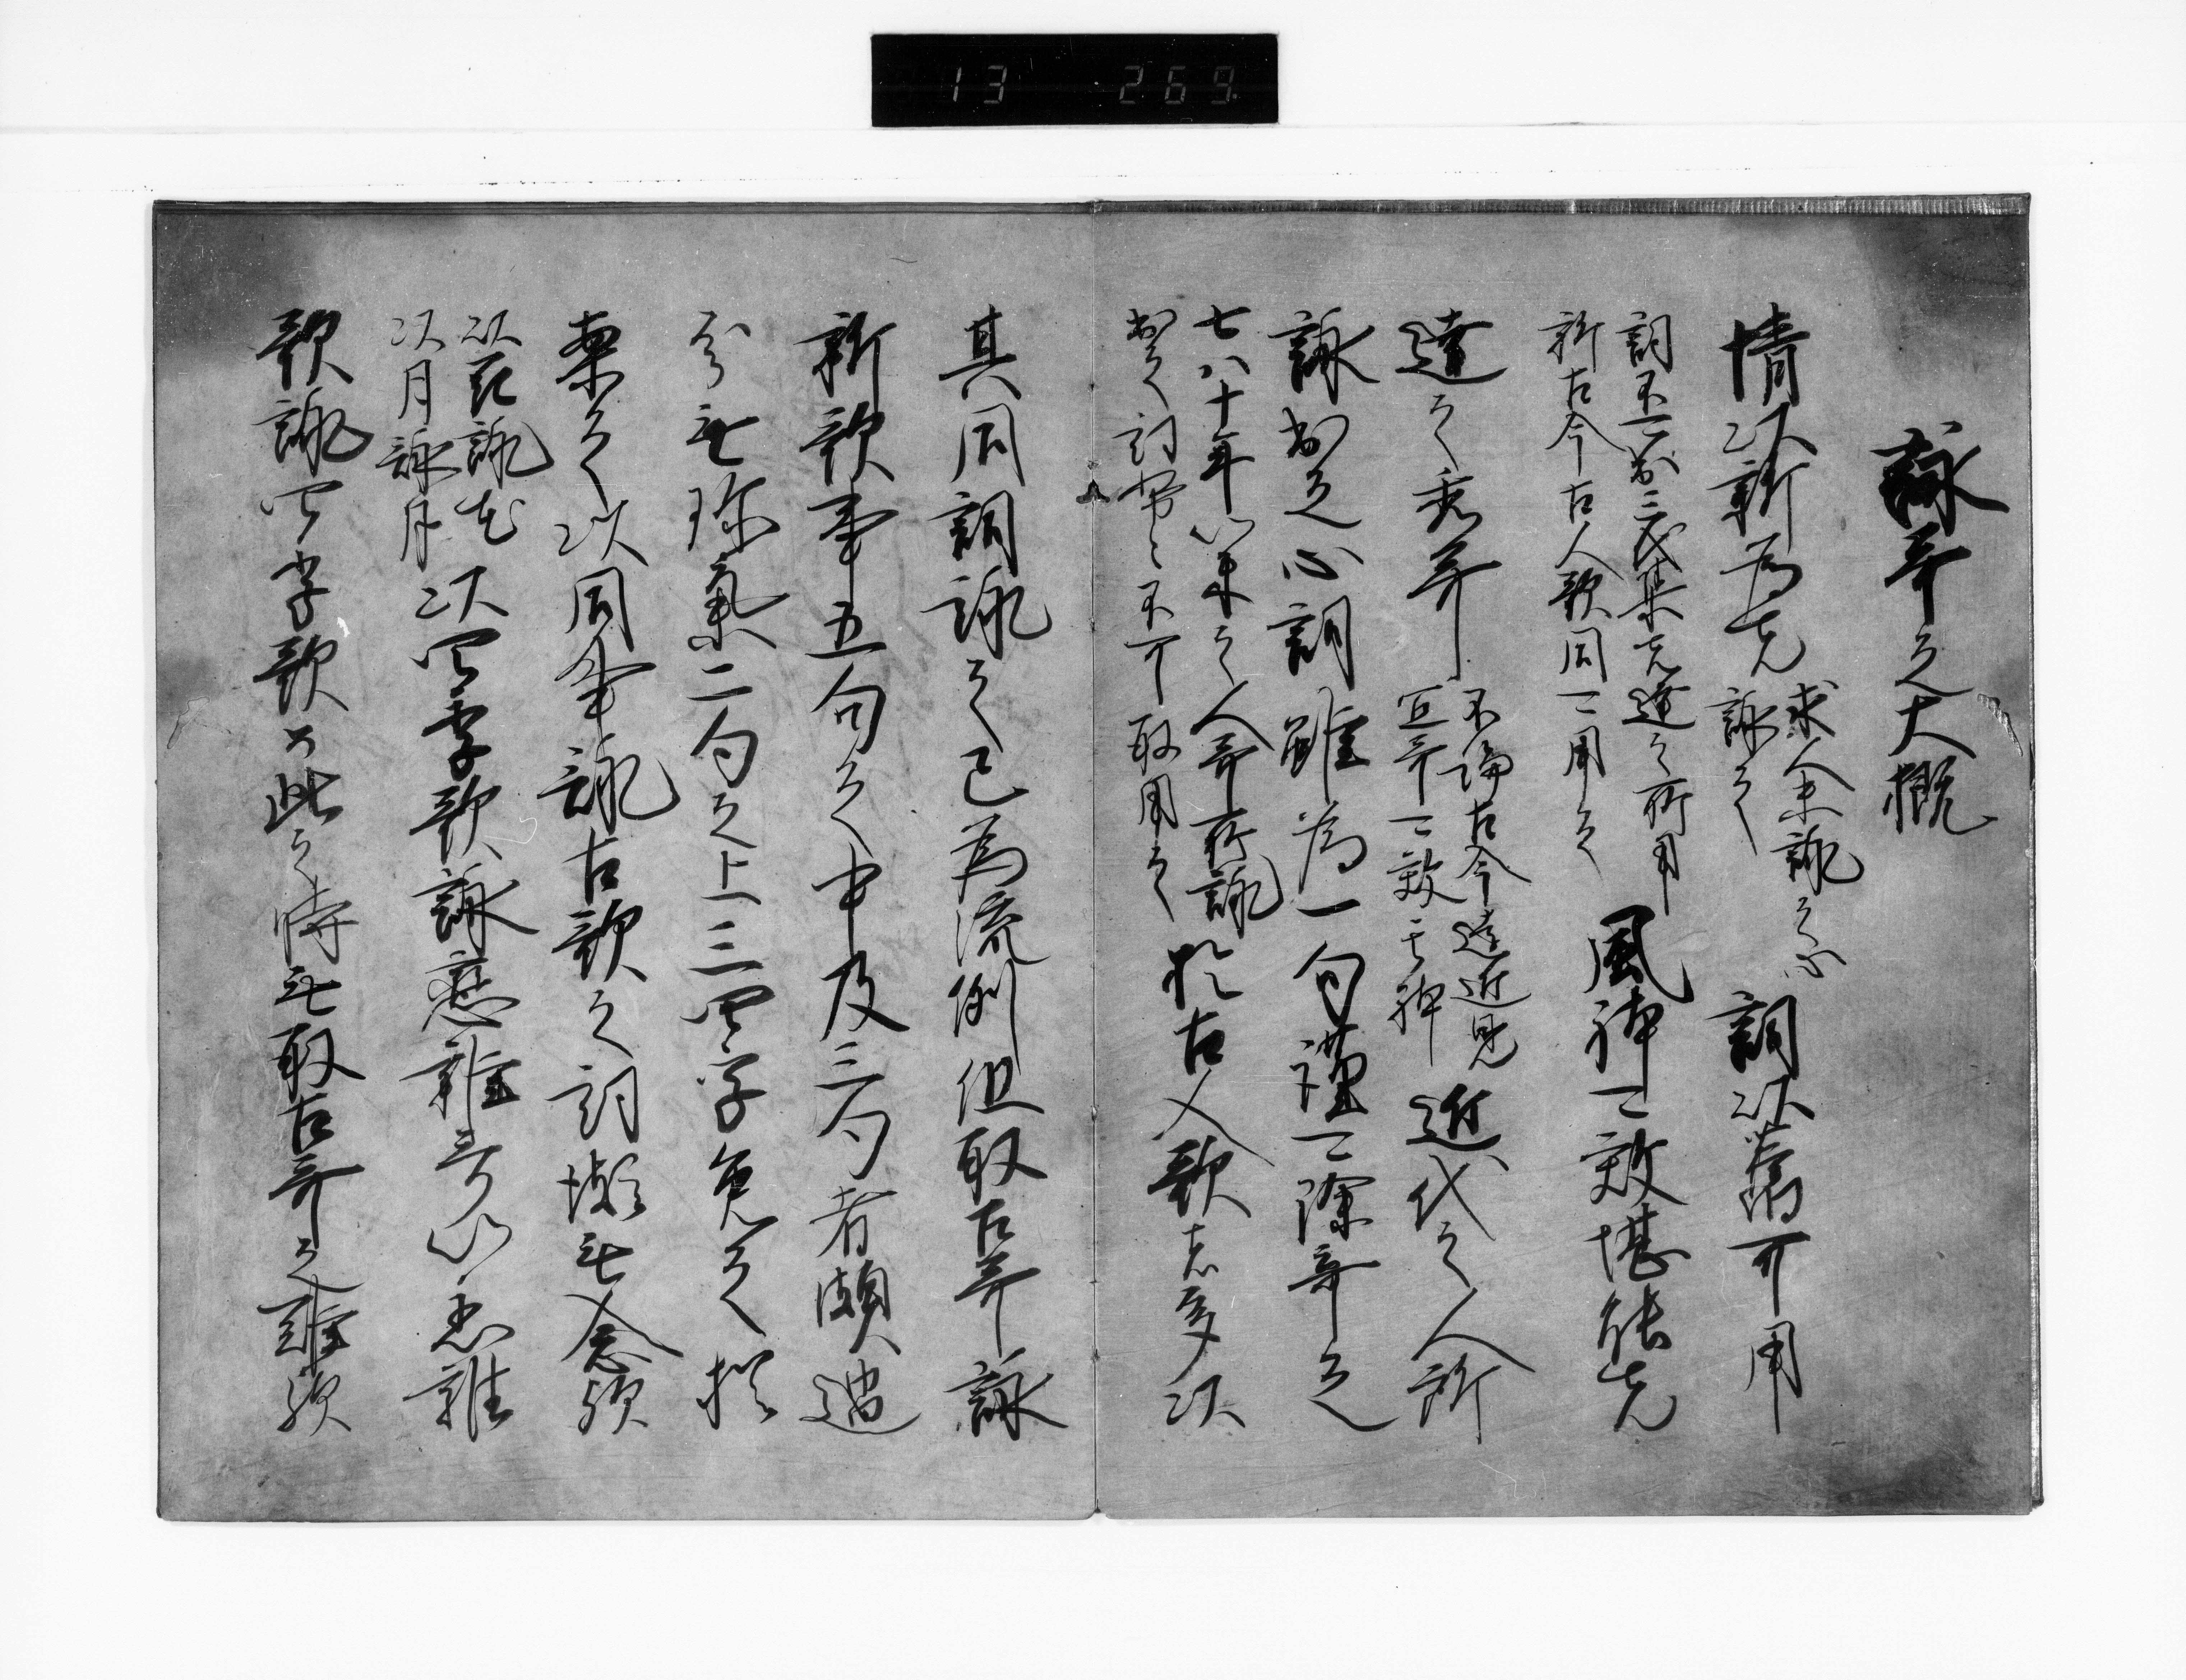 13 269
詠哥之大概
情以新為先
求人未詠之心
詠之
詞以舊可用
詞不可出三代集先達之所用
新古今古人歌同可用之
風躰可效堪能先
達之秀哥
不論古今遠近見
宜哥可效其躰
近代之人所
詠出之心詞雖為一句謹可除弃之
七八十年以来之人哥所詠
出之詞努々不可取用之
於古人歌者多以
其同詞詠之已為流例但取古哥詠
新歌事五句之中及三句者頗過
分無珍氣二句之上三四字免之猶
案之以同事詠古歌之詞頗無念歟
以花詠花
以月詠月
以四季歌詠戀雜哥以恋雜
歌詠四季歌如此之時無取古哥之難歟